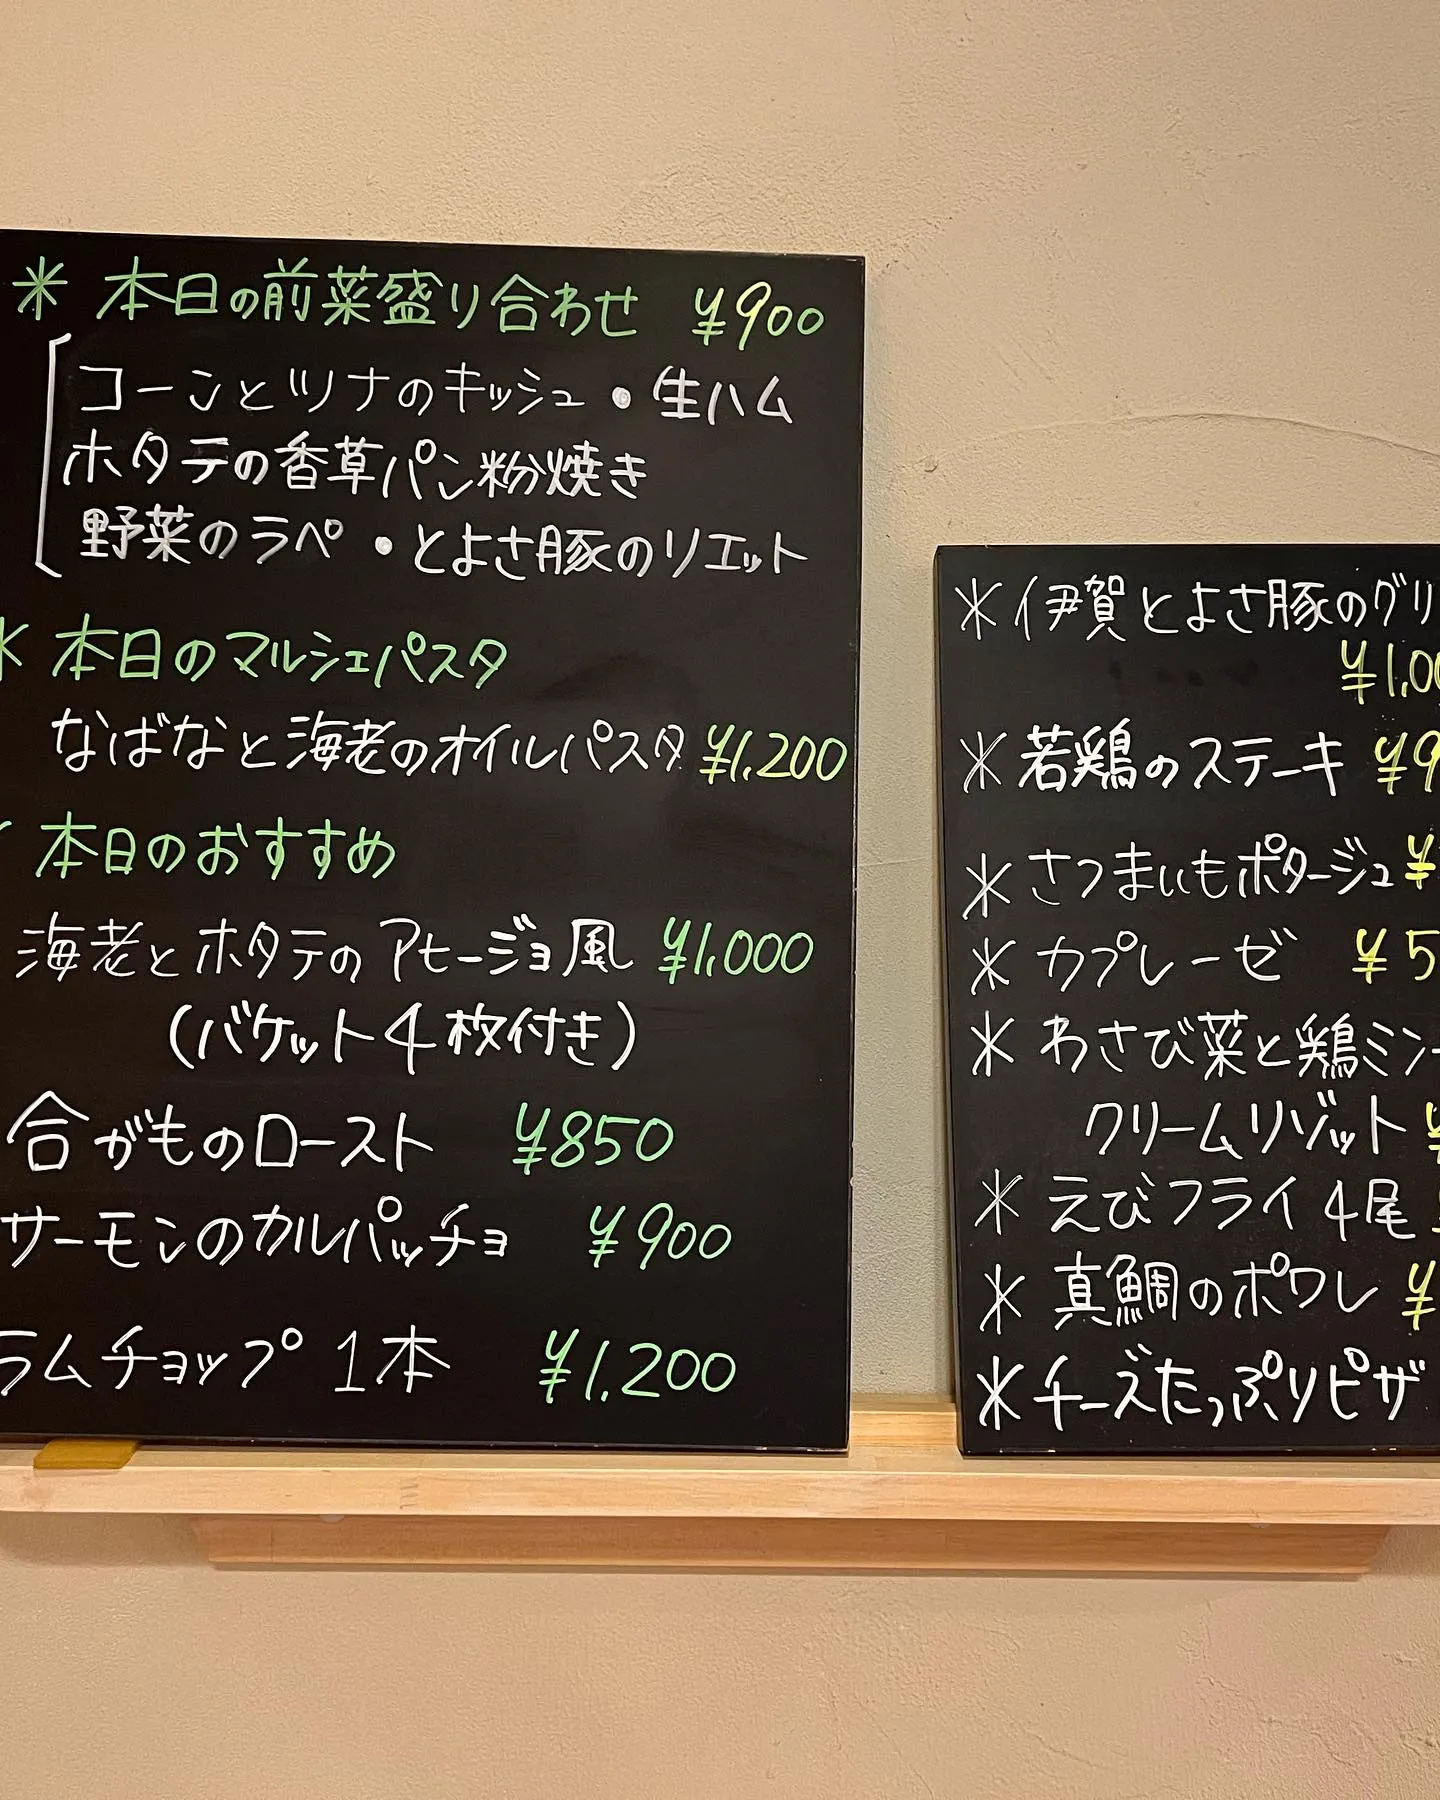 * 本日の前菜盛り合わせ ¥900
コーンとツナのキッシュ・生ハム
ホタテの香草パン粉焼き
野菜のラペ・とよさ豚のリエット
* 本日のマルシェパスタ
なばなと海老のオイルパスタ ¥1,200
本日のおすすめ
海老とホタテのアヒージョ風 ¥1,000
(バケット4枚付き)
合がものロースト ¥850
サーモンのカルパッチョ ¥900
ラムチョップ 1本 ¥1,200
* 伊賀とよさ豚のグリ
¥1,00
* 若鶏のステーキ ¥9
* さつまいもポタージュ ¥
* カプレーゼ ¥5
* わさび菜と鶏ミン
クリームリゾット ¥
* えびフライ4尾
* 真鯛のポワレ ¥
* チーズたっぷりピザ